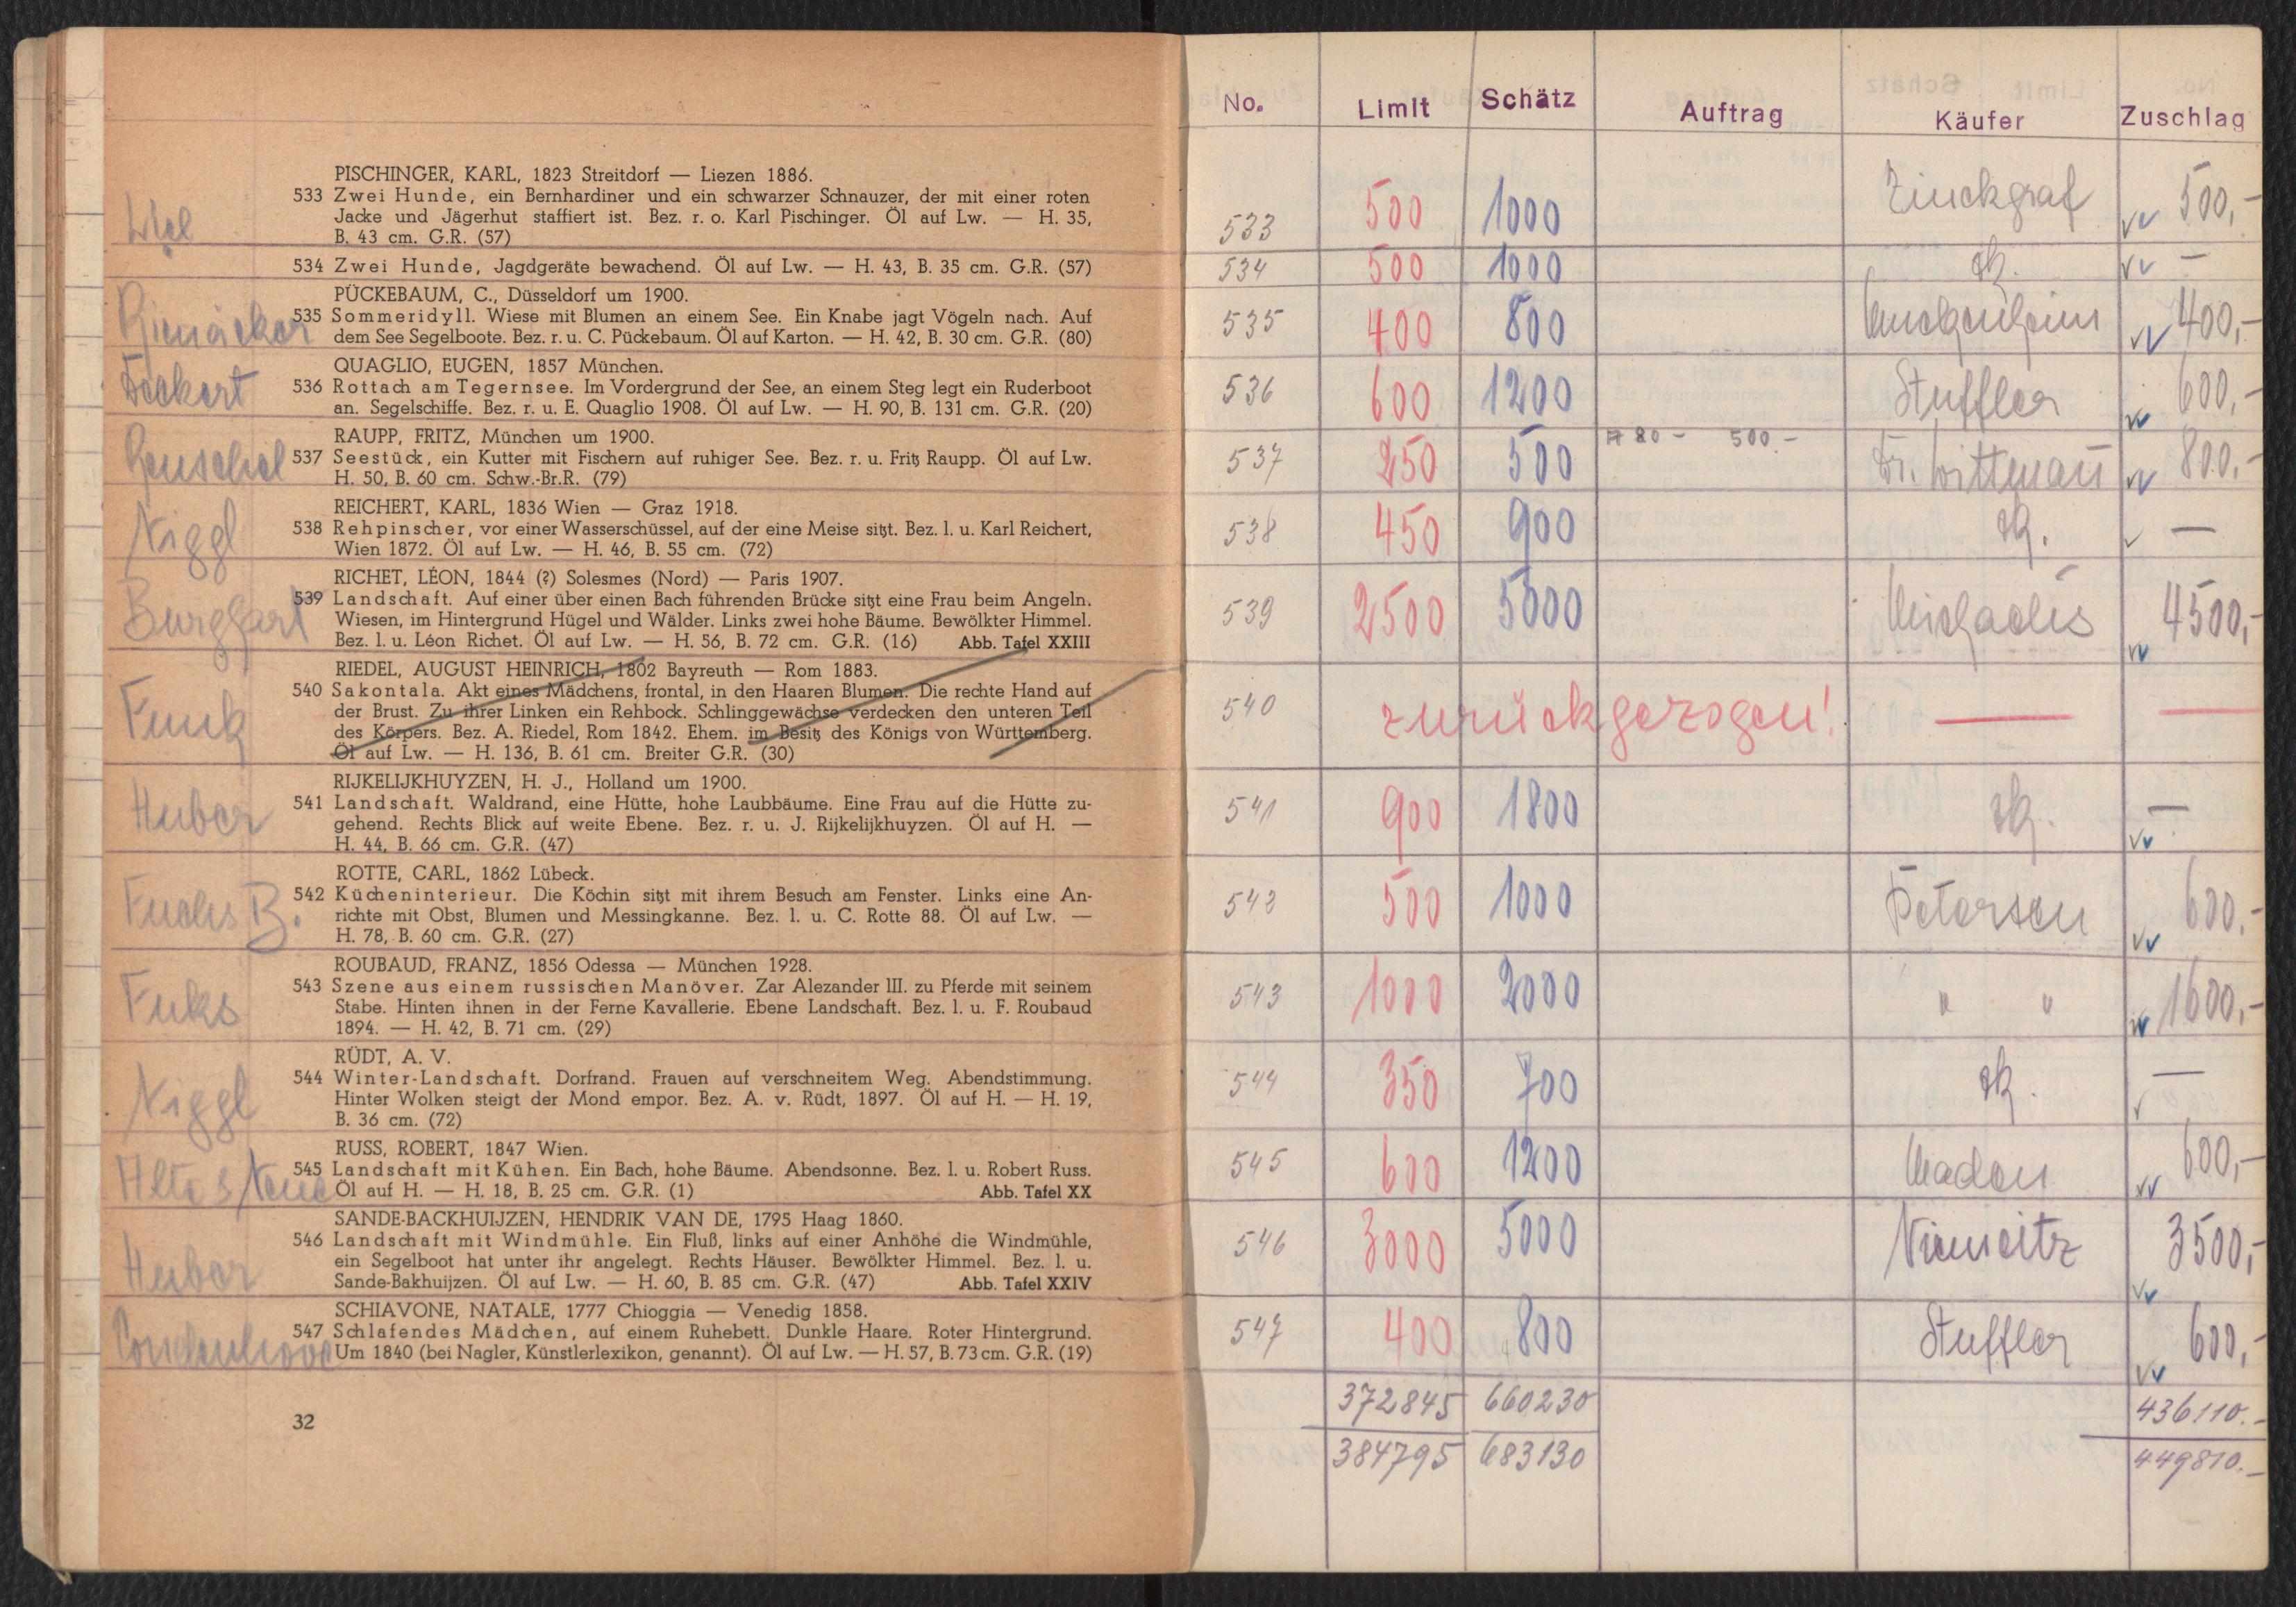 PISCHINGER, KARL, 1823 Streitdorf — Liezen 1886.
533 Zwei Hunde, ein Bernhardiner und ein schwarzer Schnauzer, der mit einer roten
Jacke und Jägerhut staffiert ist. Bez. r. o. Karl Pischinger. Öl auf Lw. — H. 35,
B. 43 cm. G.R. (57)
534 Zwei Hunde, Jagdgeräte bewachend. Öl auf Lw. — H. 43, B. 35 cm. G.R. (57)
PÜCKEBAUM, C., Düsseldorf um 1900.
535 Sommeridyll. Wiese mit Blumen an einem See. Ein Knabe jagt Vögeln nach. Auf
dem See Segelboote. Bez. r. u. C. Pückebaum. Öl auf Karton. — H. 42, B. 30 cm. G.R. (80)
Rienäcker
QUAGLIO, EUGEN, 1857 München.
536 Rottach am Tegernsee. Im Vordergrund der See, an einem Steg legt ein Ruderboot
an. Segelschiffe. Bez. r. u. E. Quaglio 1908. Öl auf Lw. — H. 90, B. 131 cm. G.R. (20)
RAUPP, FRITZ, München um 1900.
537 Seestück, ein Kutter mit Fischern auf ruhiger See. Bez. r. u. Fritz Raupp. Öl auf Lw.
H. 50, B. 60 cm. Schw.-Br.R. (79)
REICHERT, KARL, 1836 Wien — Graz 1918.
Niggl
538 Rehpinscher, vor einer Wasserschüssel, auf der eine Meise sitzt. Bez. l. u. Karl Reichert,
Wien 1872. Öl auf Lw. — H. 46, B. 55 cm. (72)
RICHET, LÉON, 1844 (?) Solesmes (Nord) — Paris 1907.
Burghart
539 Landschaft. Auf einer über einen Bach führenden Brücke sitzt eine Frau beim Angeln.
Wiesen, im Hintergrund Hügel und Wälder. Links zwei hohe Bäume. Bewölkter Himmel.
Bez. l. u. Léon Richet. Öl auf Lw. — H. 56, B. 72 cm. G.R. (16) Abb. Tafel XXIII
RIEDEL, AUGUST HEINRICH, 1802 Bayreuth — Rom 1883.
Funk
540 Sakontala. Akt eines Mädchens, frontal, in den Haaren Blumen. Die rechte Hand auf
der Brust. Zu ihrer Linken ein Rehbock. Schlinggewächse verdecken den unteren Teil
des Körpers. Bez. A. Riedel, Rom 1842. Ehem. im Besitz des Königs von Württemberg.
Öl auf Lw. — H. 136, B. 61 cm. Breiter G.R. (30)
RIJKELIJKHUYZEN, H. J., Holland um 1900.
Huber
541 Landschaft. Waldrand, eine Hütte, hohe Laubbäume. Eine Frau auf die Hütte zu-
gehend. Rechts Blick auf weite Ebene. Bez. r. u. J. Rijkelijkhuyzen. Öl auf H. —
H. 44, B. 66 cm. G.R. (47)
ROTTE, CARL, 1862 Lübeck.
Fuchs B.
542 Kücheninterieur. Die Köchin sitzt mit ihrem Besuch am Fenster. Links eine An-
richte mit Obst, Blumen und Messingkanne. Bez. l. u. C. Rotte 88. Öl auf Lw. —
H. 78, B. 60 cm. G.R. (27)
ROUBAUD, FRANZ, 1856 Odessa — München 1928.
Fuks
543 Szene aus einem russischen Manöver. Zar Alezander III. zu Pferde mit seinem
Stabe. Hinten ihnen in der Ferne Kavallerie. Ebene Landschaft. Bez. l. u. F. Roubaud
1894. — H. 42, B. 71 cm. (29)
RÜDT, A. V.
Niggl
544 Winter-Landschaft. Dorfrand. Frauen auf verschneitem Weg. Abendstimmung.
Hinter Wolken steigt der Mond empor. Bez. A. v. Rüdt, 1897. Öl auf H. — H. 19,
B. 36 cm. (72)
RUSS, ROBERT, 1847 Wien.
545 Landschaft mit Kühen. Ein Bach, hohe Bäume. Abendsonne. Bez. l. u. Robert Russ.
Öl auf H. — H. 18, B. 25 cm. G.R. (1) Abb. Tafel XX
SANDE-BACKHUIJZEN, HENDRIK VAN DE, 1795 Haag 1860.
Huber
546 Landschaft mit Windmühle. Ein Fluß, links auf einer Anhöhe die Windmühle,
ein Segelboot hat unter ihr angelegt. Rechts Häuser. Bewölkter Himmel. Bez. l. u.
Sande-Bakhuijzen. Öl auf Lw. — H. 60, B. 85 cm. G.R. (47) Abb. Tafel XXIV
SCHIAVONE, NATALE, 1777 Chioggia — Venedig 1858.
547 Schlafendes Mädchen, auf einem Ruhebett. Dunkle Haare. Roter Hintergrund.
Um 1840 (bei Nagler, Künstlerlexikon, genannt). Öl auf Lw. — H. 57, B. 73 cm. G.R. (19)
32
No. Limit Schätz Auftrag Käufer Zuschlag
533 500 1000 Zinckgraf 500,-
534 500 1000 zk. —
535 400 800 400,-
536 600 1200 Stuffler 600,-
537 250 500 80 - 500 - Dr. Wittmann 800,-
538 450 900 zk. —
539 2500 5000 Michaelis 4500,-
540 zurückgezogen! — —
541 900 1800 zk. —
542 500 1000 Petersen 600.-
543 1000 2000 " " 1600,-
544 350 700 zk. —
545 600 1200 Madon 600,-
546 3000 5000 3500,-
547 400 800 Stuffler 600,-
372845 660230 436110.-
384795 683130 449810.-